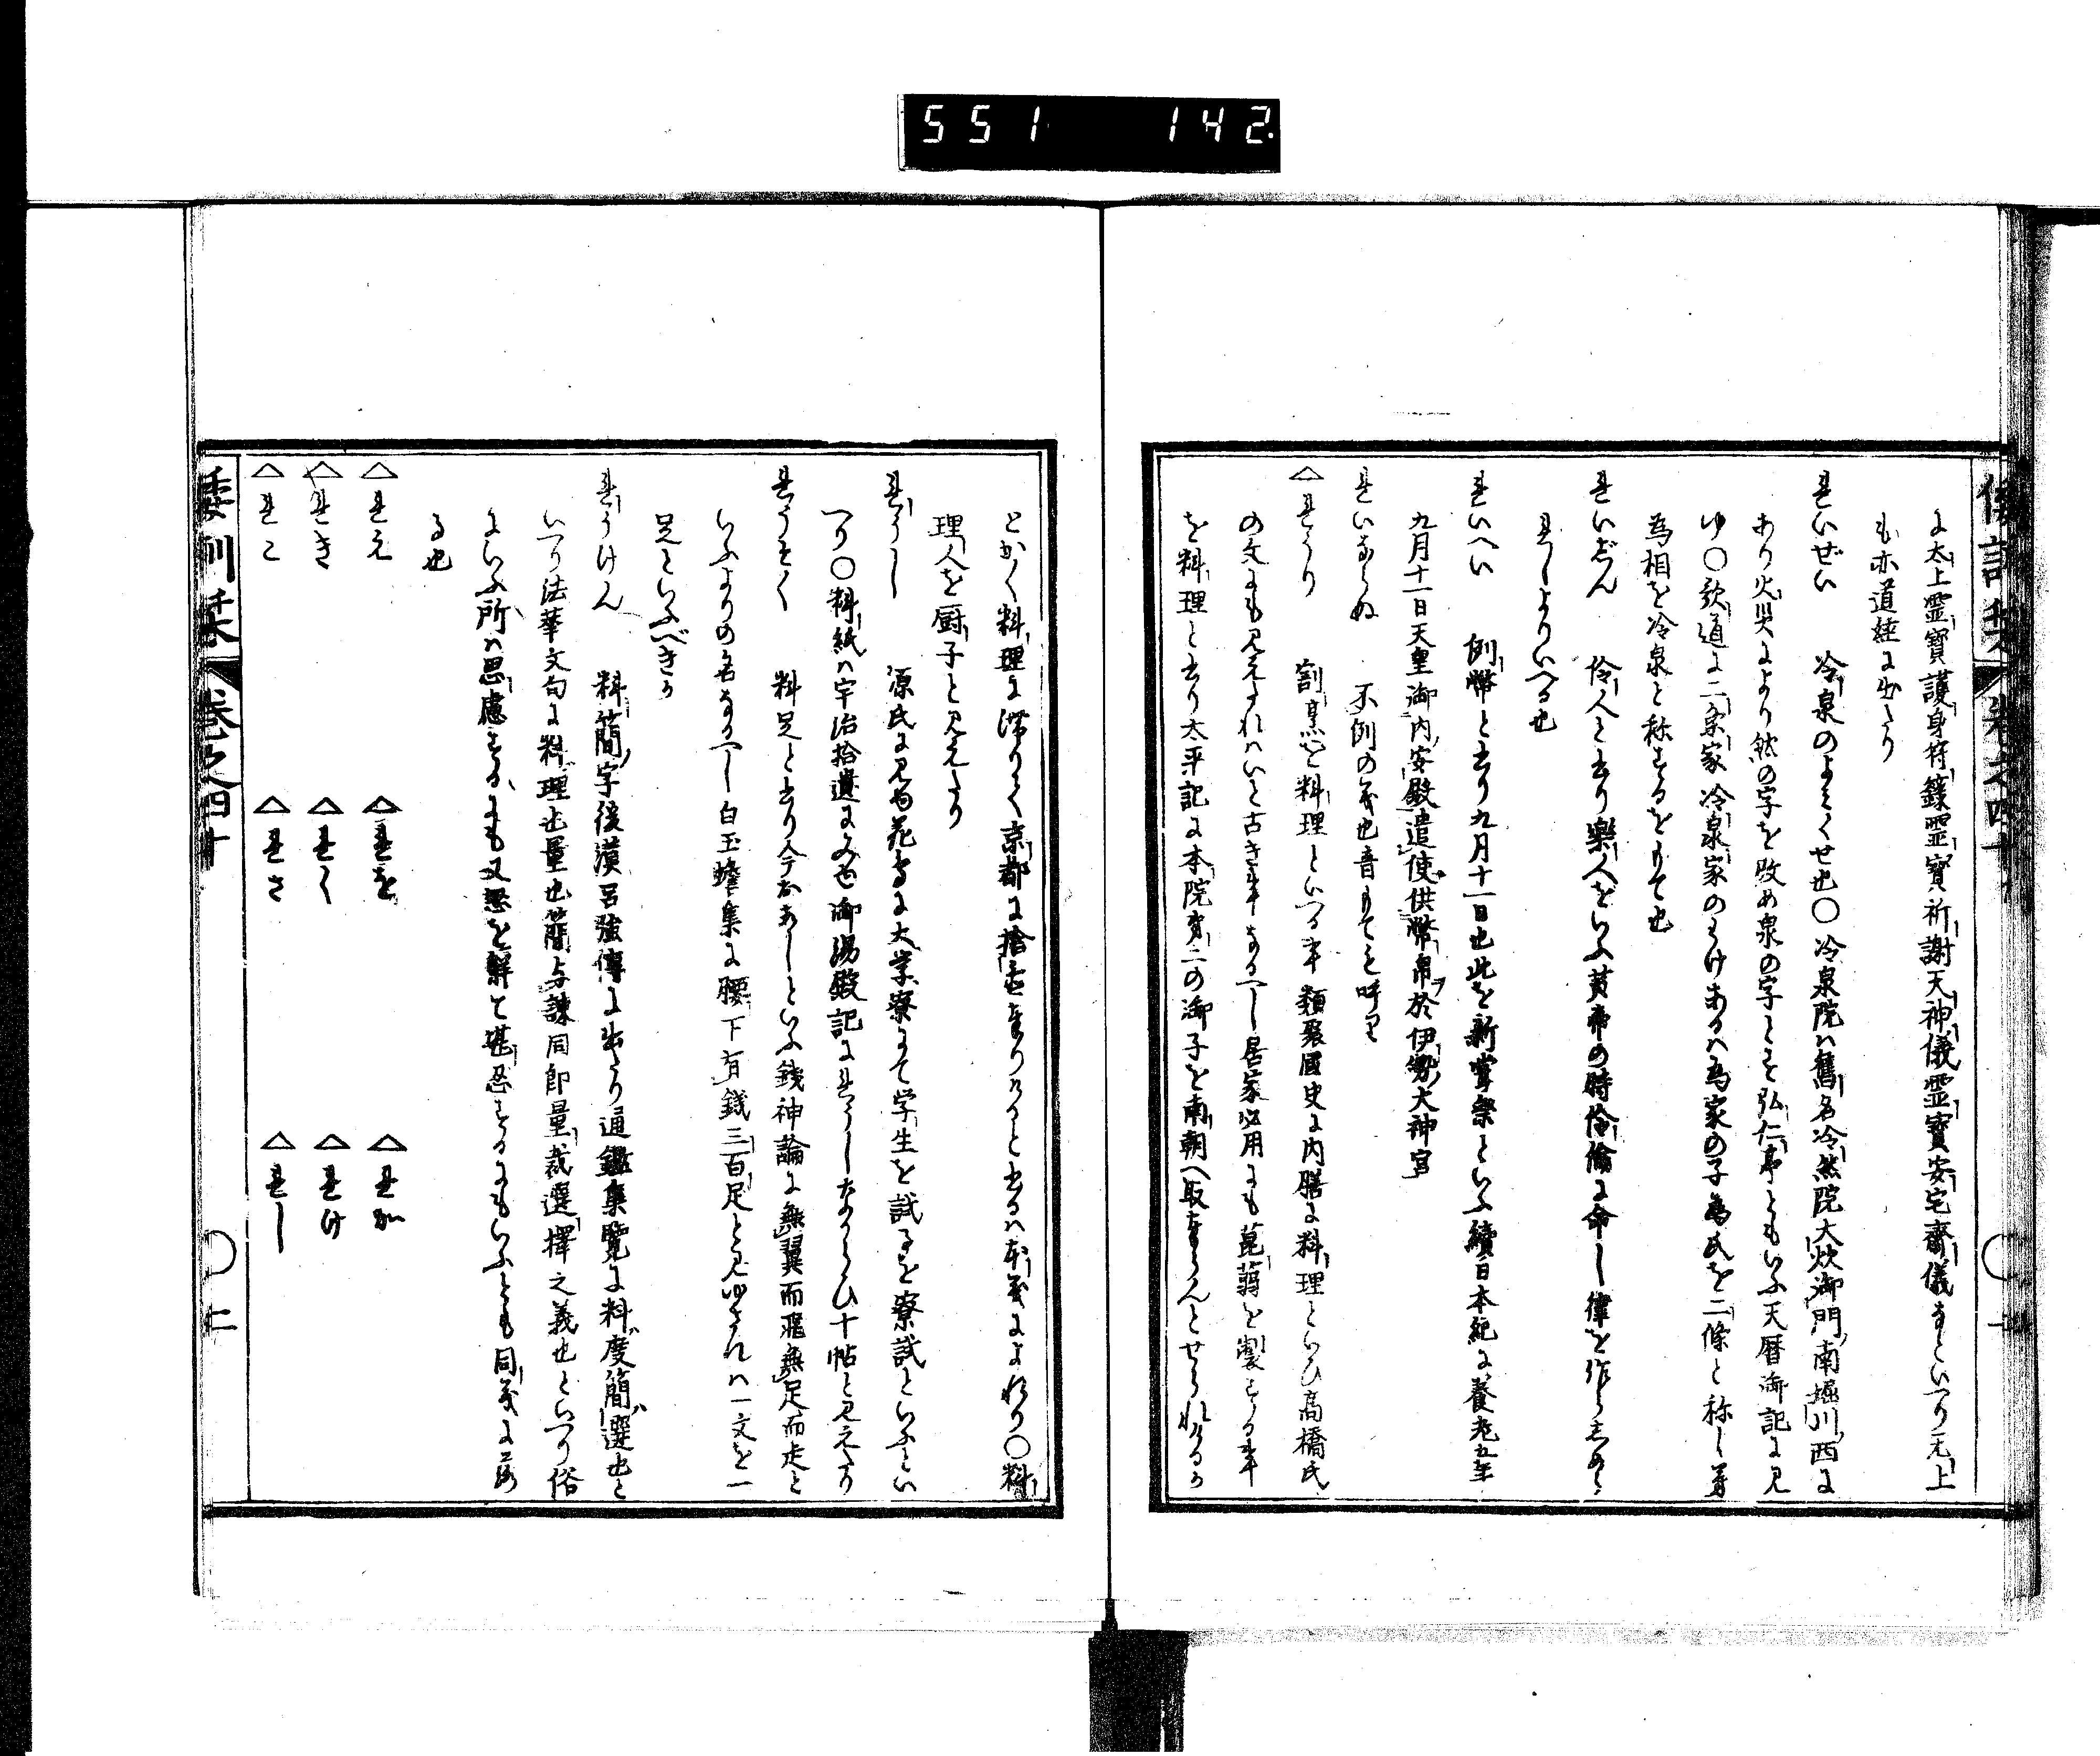 551 142
倭訓栞 巻之四十
に太上霊寶護身符籙霊寶祈謝天神儀霊寶安宅齋儀なといへり无上
も亦道経に出たり
れいぜい 冷泉のよみくせ也〇冷泉院ハ舊名冷然院大炊御門南堀川西に
あり火災により然の字を改め泉の字とそ弘仁亭ともいふ天暦御記に見
ゆ〇歌道に二条家冷泉家のわけあるハ為家の子為氏を二條と称し
為相を冷泉と称するをもて也
れいじん 伶人と書り樂人をいふ黄帝の時伶倫に命し律を作らしめ
れしよりいへる也
れいへい 例幣と書り九月十一日也此を新嘗祭といふ續日本紀に養老五年
九月十一日天皇御内安殿遣使供幣帛於伊勢大神宮
れいならぬ 不例の義也音もてそ呼り
△れうり 割烹を料理といへる事類聚國史に内膳に料理といひ高橋氏
の文にも見えたれハいと古き事なるへし居家必用にも蒟蒻を製する事
を料理と書り太平記に本院第二の御子を南朝へ取奉らんとせられけるか
とかく料理に滞りて京都に捨置奉りけると書るハ本義によれり〇料
理人を厨子と見えたり
れうし 源氏に見ゆ花鳥に大学寮にて学生を試るを寮試といふとい
へり〇料紙ハ宇治拾遺にみゆ御湯殿記にれうしなからひ十帖と見えたり
れうそく 料足と書り今おあしといふ銭神論に無翼而飛無足而走と
いふよりの名なるへし白玉蟾集に腰下有銭三百足と見ゆされハ一文を一
足といふべきか
れうけん 料簡字後漢呂強傳に出たり通鑑集覧に料度簡選也と
いへり法華文句に料理也量也簡与諫同即量裁選擇之義也といへり俗
にいふ所ハ思慮するにも又怒を解て堪忍するにもいふとも同義に落
る也
△れえ △れを △れか
△れき △れく △れけ
△れこ △れさ △れし
倭訓栞 巻之四十 〇二